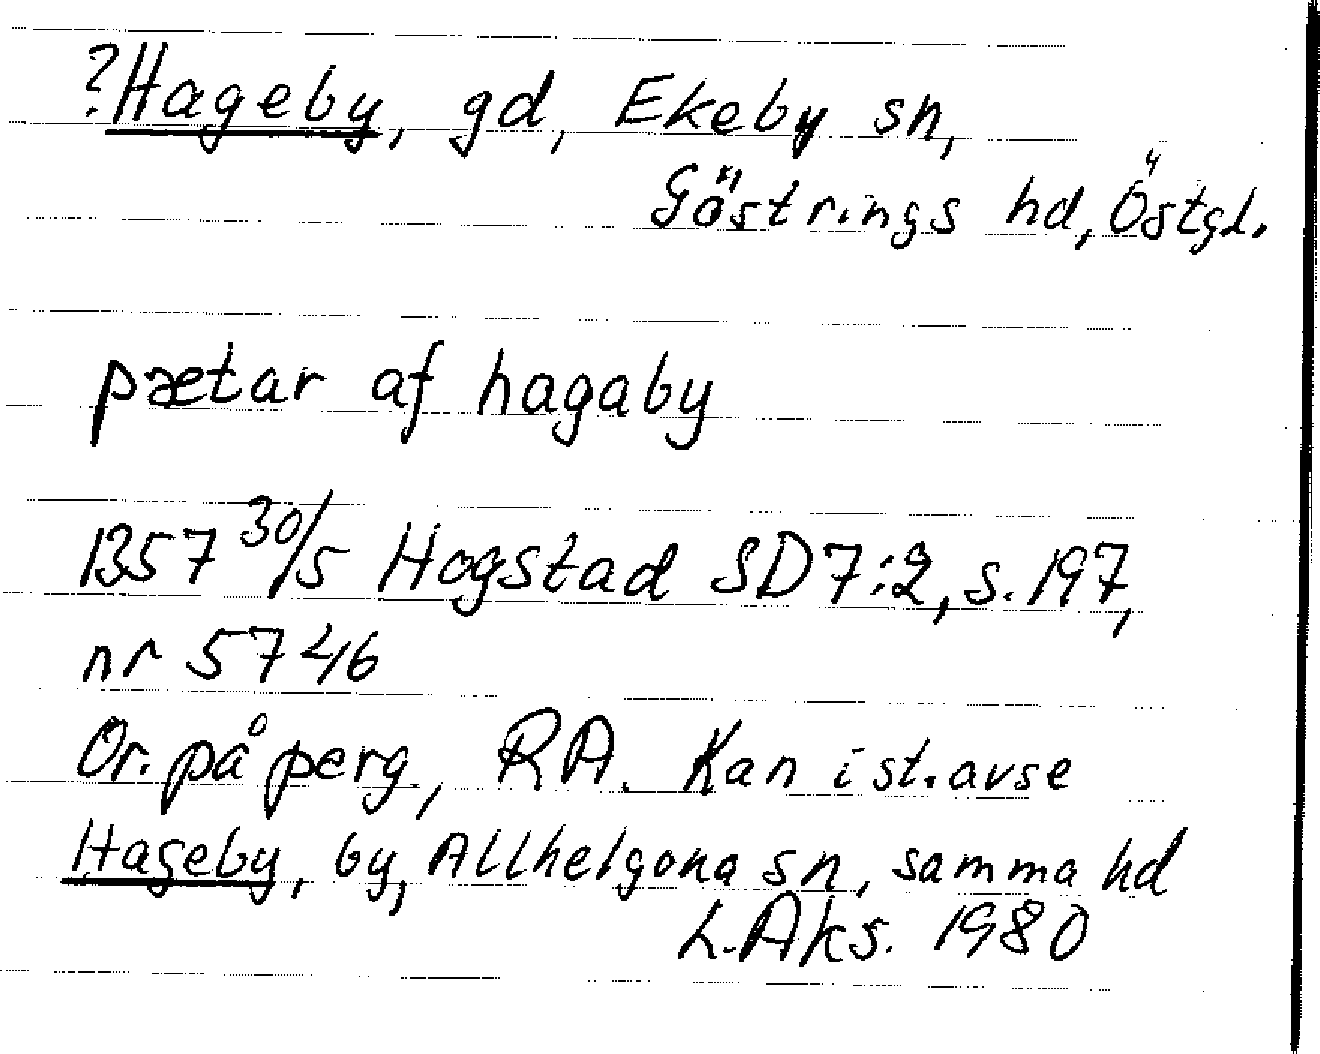 ?Hageby, gd, Ekeby sn,
Göstrings hd, Östgl.
pætar af hagaby
1357 30/5 Hogstad SD 7:2, s. 197,
nr 5746
Or. på perg., RA. Kan i st. avse
Hageby, by, Allhelgona sn, samma hd
L.Aks. 1980